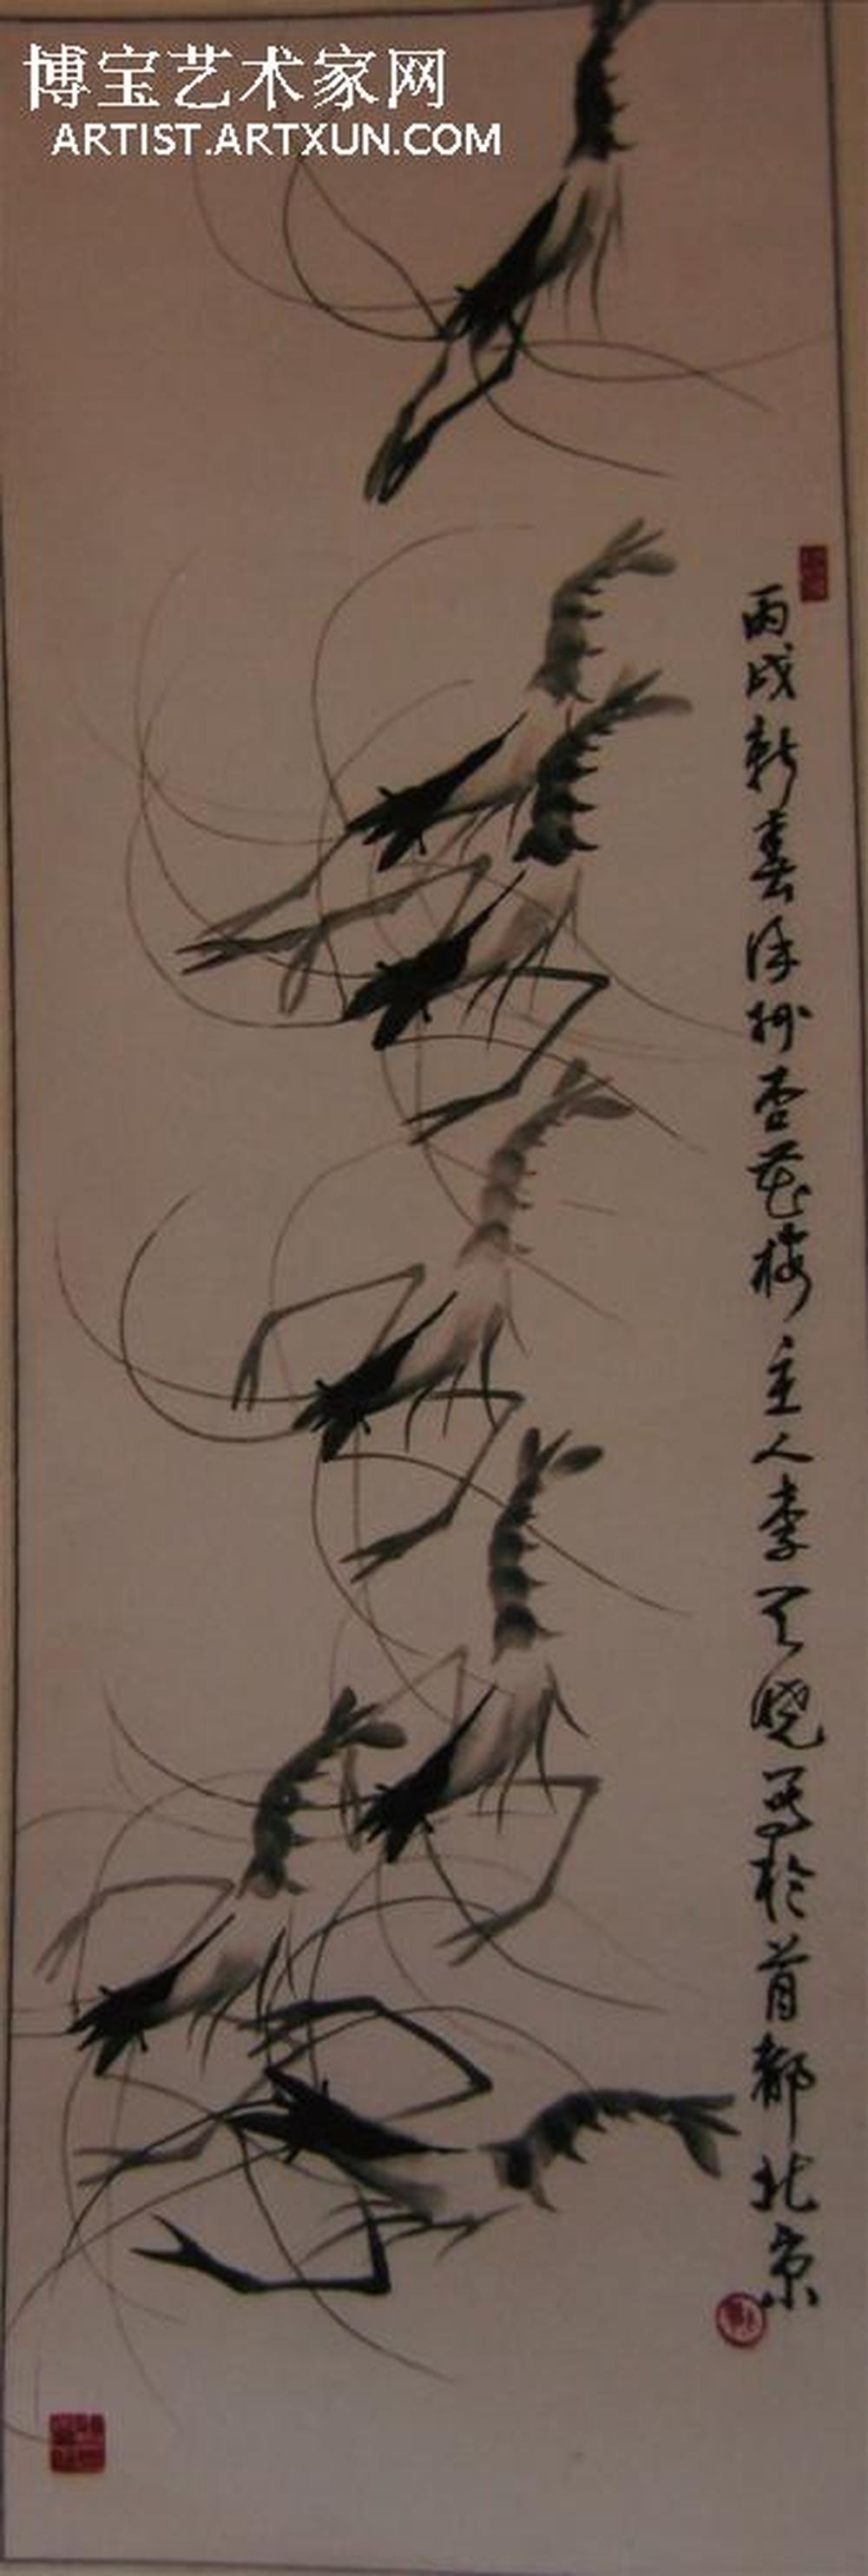 博宝艺术家网
ARTIST.ARTXUN.COM
丙戌新春 杏花楼主人李天晓写於首都北京